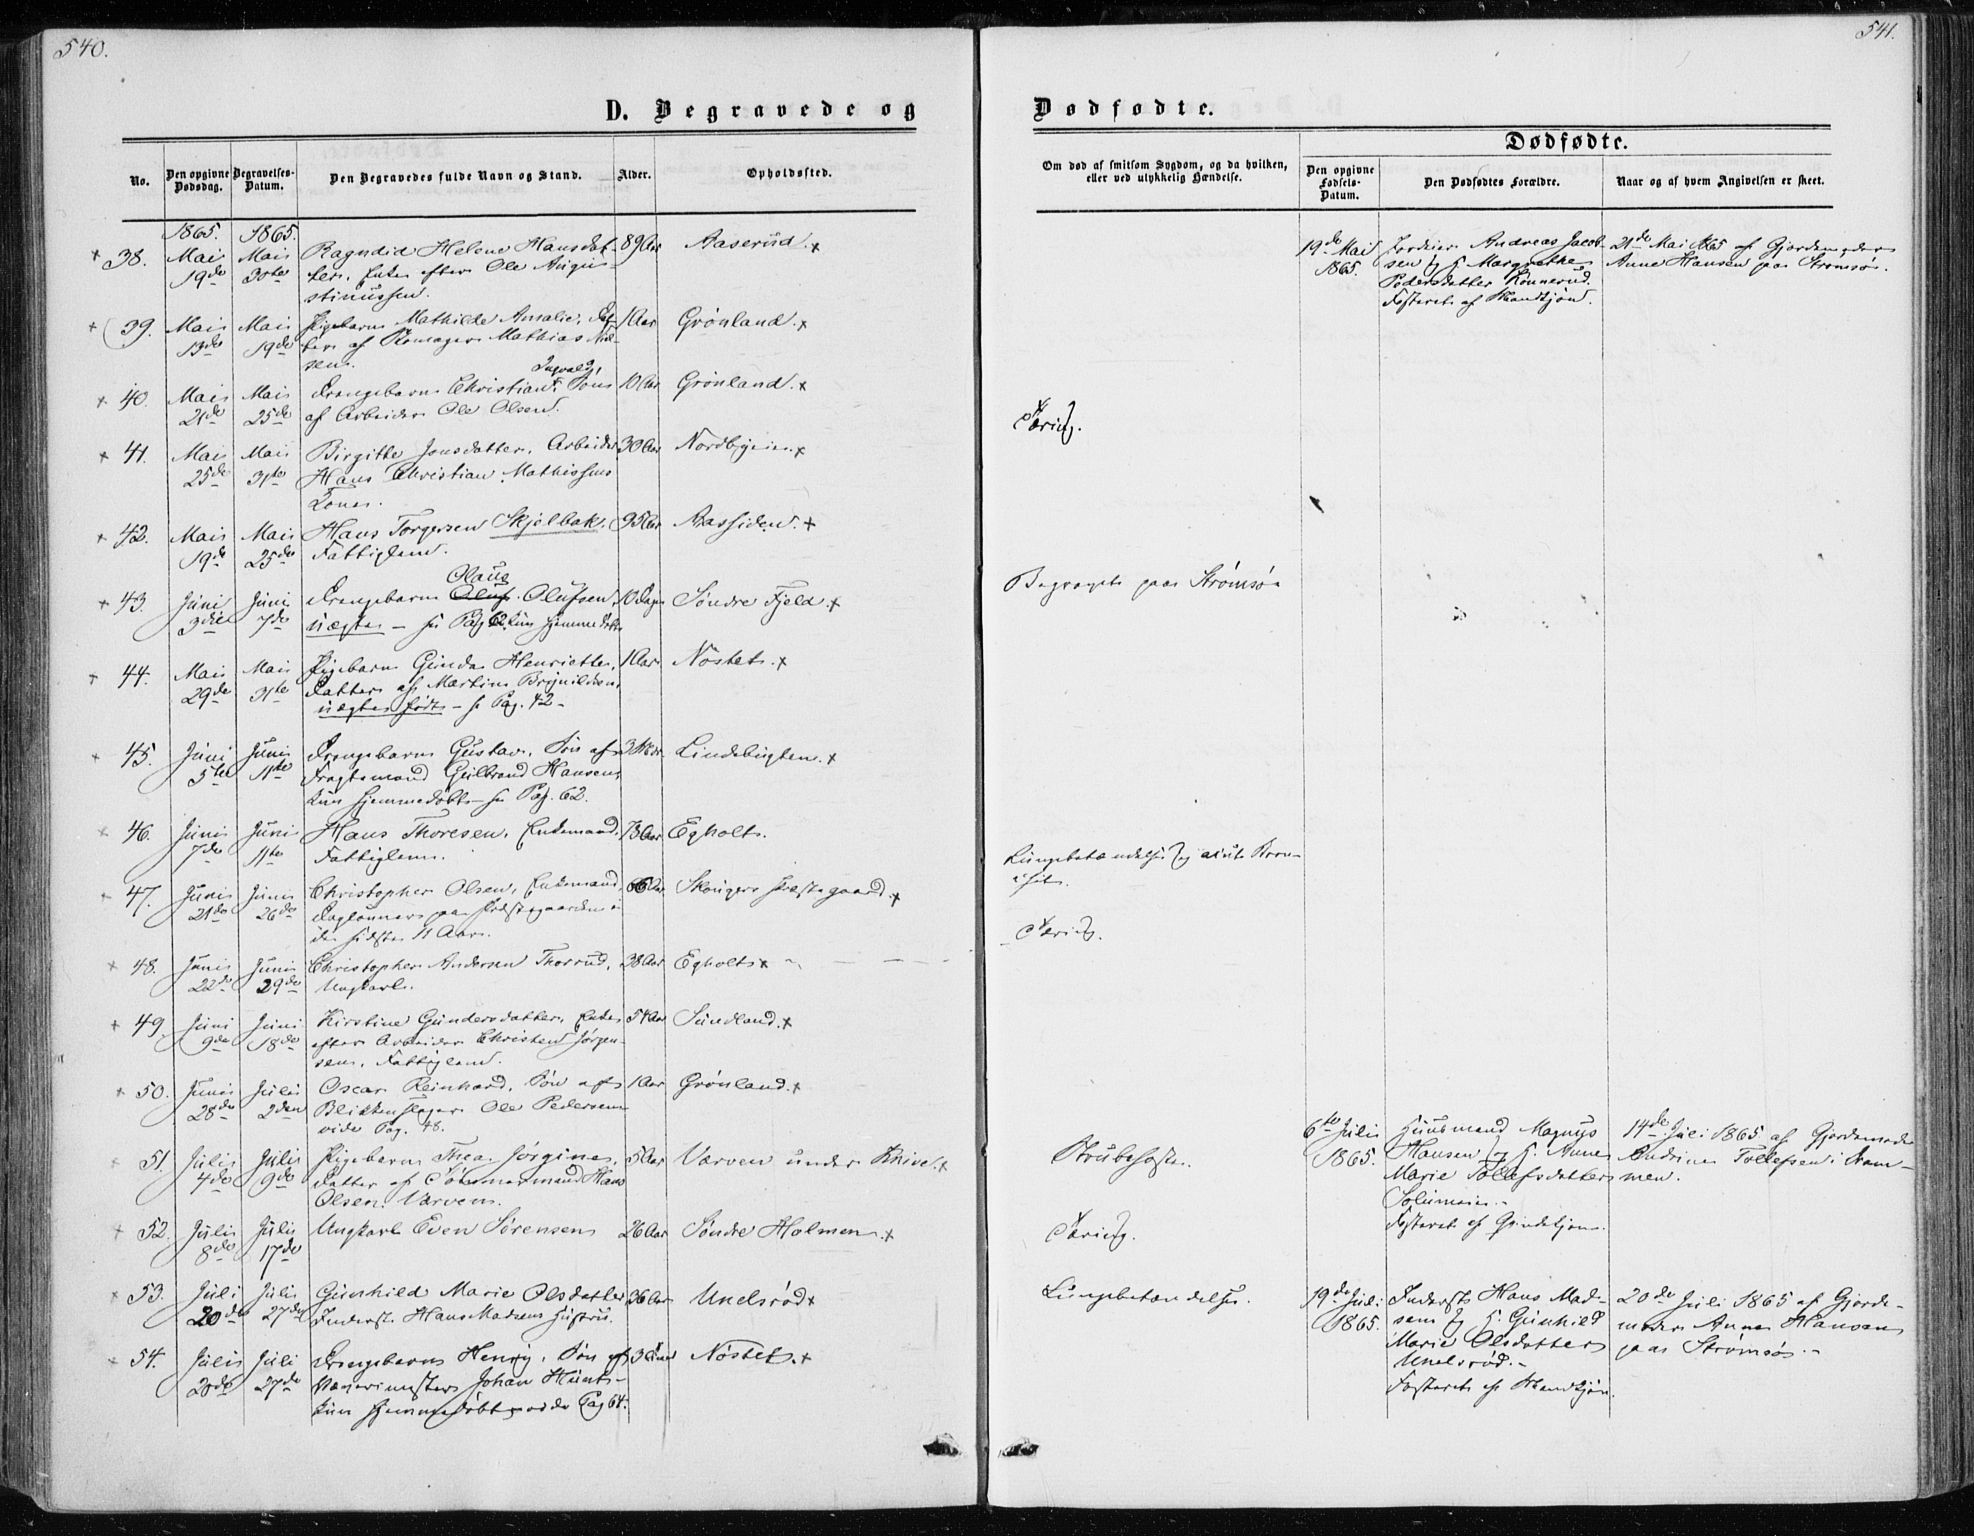 540.
D. Begravede og
No.
Den opgivne Dødsdag.
Begravelses-Datum.
Den Begravedes fulde Navn og Stand.
Alder.
Opholdssted.
1865. 1865.
38. Mai Mai Ragndid Helene Hansdat- 89 Aar Aaserud.
19de 30te ter, Enke efter Ole Augu-
stinussen.
39. Mai Mai Pigebarn Mathilde Amalie, Dat- 1 Aar Grønland.
13de 19de ter af Skomager Mathias Niel-
sen.
Ingvald,
40. Mai Mai Drengebarn Christian, Søn 10 Aar Grønland.
21de 25de af Arbeider Ole Olsen.
41. Mai Mai Birgitte Jonsdatter, Arbeider 30 Aar Nordbyeie
25de 31te Hans Christian Mathissens
Kone.
42. Mai Mai Hans Torgersen Skjelbak, 95 Aar Aassiden.
19de 25de Fattiglem.
Olaus
43. Juni Juni Drengebarn Oluf Olufsen, 10 Dage Søndre Fjeld.
3die 7de uægte – se Pag. 62, kun hjemmedøbt
44. Mai Mai Pigebarn Gunda Henriette, 1 Aar Nøstet.
29de 31te Datter af Martin Brynildsen,
uægte født – se Pag. 42 –
45. Juni Juni Drengebarn Gustav, Søn af 3 Lindebugten.
5te 11te Fragtemand Gulbrand Hansen,
kun hjemmedøbt – se Pag. 62.
46. Juni Juni Hans Thoresen, Enkemand, 73 Aar Egholt.
7de 11te Fattiglem.
47. Juni Juni Christopher Olsen, Enkemand, Aar Skouger Præstegaard.
21de 26de Daglønner paa Præstegaarden i
de sidste 11 Aar.
48. Juni Juni Christopher Andersen Thorrud, 38 Aar Egholt
22de 29de Ungkarl.
49. Juni Juni Kirstine Gundersdatter, Enke 54 Aar Sundland.
9de 18de efter Arbeider Christen Jørgen-
sen, Fattiglem.
50. Juni Juli Oscar Reinhard, Søn af 1 Aar Grønland.
28de 2den Blikkenslager Ole Pedersen
vide Pag. 48.
51. Juli Juli Pigebarn Thea Jørgine, 5 Aar Værven under Knive.
4de 9de Datter af Tømmermand Hans
Olsen Værven.
52. Juli Juli Ungkarl Even Sørensen 26 Aar Søndre Holmen.
8de 17de
53. Juli Juli Gunhild Marie Olsdatter 36 Aar Unelsrød
20de 27de Inderst Hans Madsens Hustru.
54. Juli Juli Drengebarn Henry, Søn af 3 Nøstet.
20de 27de Johan Hunt –
kun hjemmedøbt vide Pag 64.
541.
Dødfødte.
Dødfødte.
Om død af smitsom Sygdom, og da hvilken,
eller ved ulykkelig Hændelse.
Den opgivne
Fødsels-
Datum.
Den Dødfødtes Forældre.
Naar og af hvem Angivelsen er skeet.
19de Mai Andreas Jacob- 21de Mai 1865 af Gjordemoder
1865. sen og H. Margrethe Anne Hansen paa Strømsø.
Pedersdatter Konnerud.
Fosteret af Mandkjøn.
Tæring.
Begravet paa Strømsø
Lungebetændelse og
Tæring.
6te Juli Huusmand Magnus 14de Juli 1865 af Gjordemoder
1865. Hansen og H. Anne Andrine Tollefsen i Dram-
Marie Tollefsdatter men.
Solumeie. –
Fosteret af Qvindekjøn.
Strubehoste.
Tæring.
Lungebetændelse.
19de Juli Inderst Hans Mad- 20de Juli 1865 af Gjorde-
1865. sen og H. Gunhild moder Anne Hansen
Marie Olsdatter paa Strømsø. –
Unelsrød. –
Fosteret af Mandkjøn.